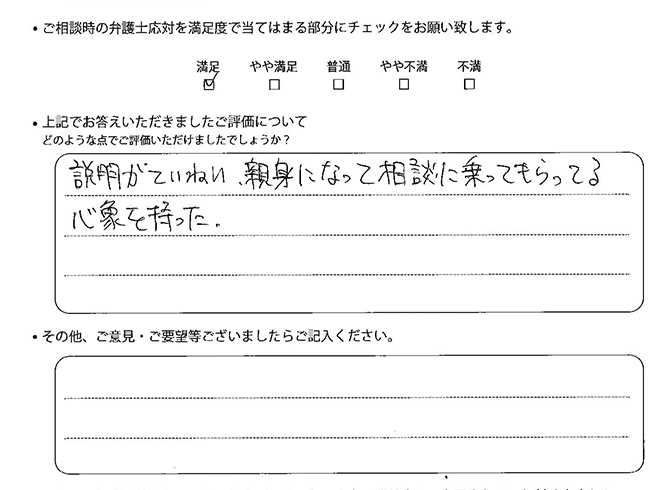 ・ご相談時の弁護士応対を満足度で当てはまる部分にチェックをお願い致します。
満足 やや満足 普通 やや不満 不満
☑ □ □ □ □
・上記でお答えいただきましたご評価について
どのような点でご評価いただけましたでしょうか？
説明がていねい、親身になって相談に乗ってもらってる
心象を持った。
・その他、ご意見・ご要望等ございましたらご記入ください。